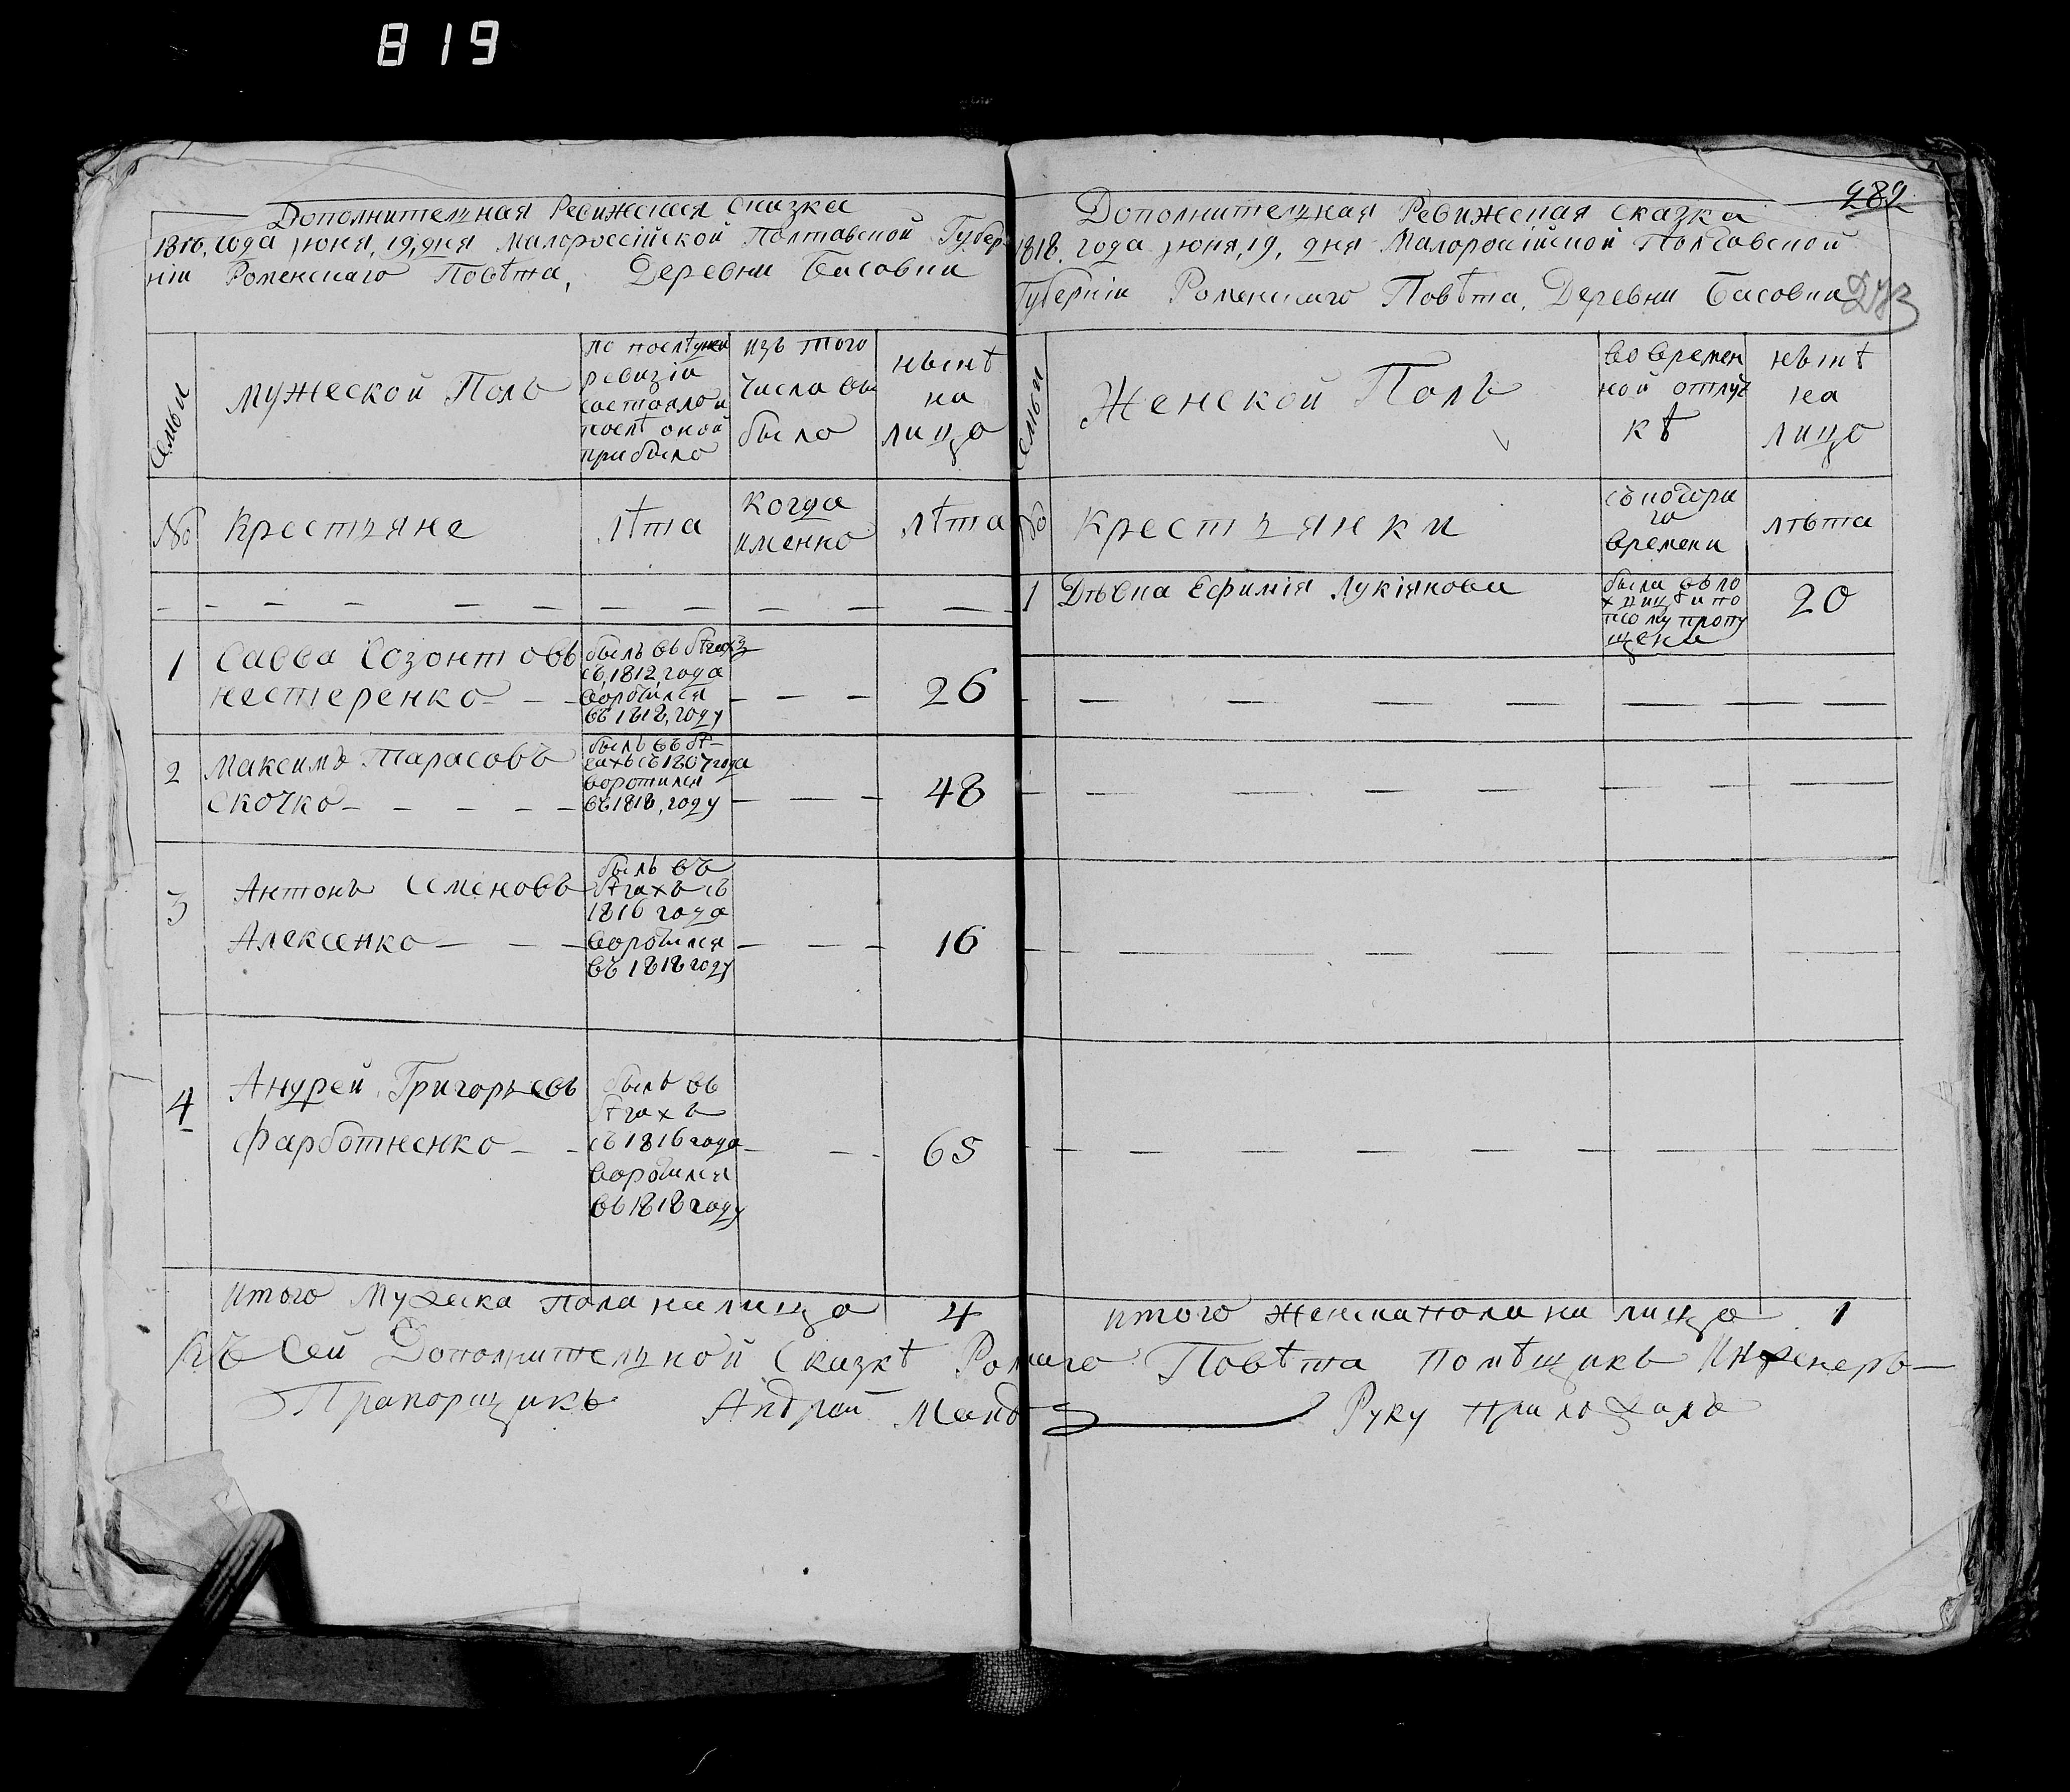 819
Дополнителная Ревижская сказка
1818, года июня, 19, дня Малороссійской Полтавской Губер
ніи Роменскаго Повѣта, Деревни Басовки
семьи
Мужеской Полъ
по послѣдней
ревизіи
состояло и
послѣ оной
прибыло
изъ того
числа вы
было
нынѣ
на
лицо
№
Крестьяне
лѣта
когда
именно
лѣта
1
Савва Созонтовъ
Нестеренко
былъ въ бѣгахъ
съ 1812, года
воротился
въ 1818, году
26
2
Максимъ Тарасовъ
Скочко
былъ въ бѣ-
гахъ съ 1807 года
воротился
въ 1818, году
48
3
Антонъ Семеновъ
Алексенко
былъ въ
бѣгахъ съ
1816 года
воротился
въ 1818 году
16
4
Андрей Григорьевъ
Фарботненко
былъ въ
бѣгахъ
съ 1816 года
воротился
въ 1818 году
65
итого Мужеска пола на лицо 4
282
Дополнителная Ревижская сказка
1818. года июня, 19, дня Малоросійской Полтавской
Губерніи Роменскаго Повѣта, Деревни Басовки
семьи
Женской Полъ
во времен
ной отлуч
кѣ
нынѣ
на
лицо
№
Крестьянки
съ котора
го
времени
лѣта
1
Дѣвка Ефимія Лукіянова
20
итого женска пола на лицо 1
Къ Сей Дополнителной Сказкѣ Ромнаго Повѣта помѣщикъ Инженеръ-
Прапорщикъ Андрей Руку приложилъ